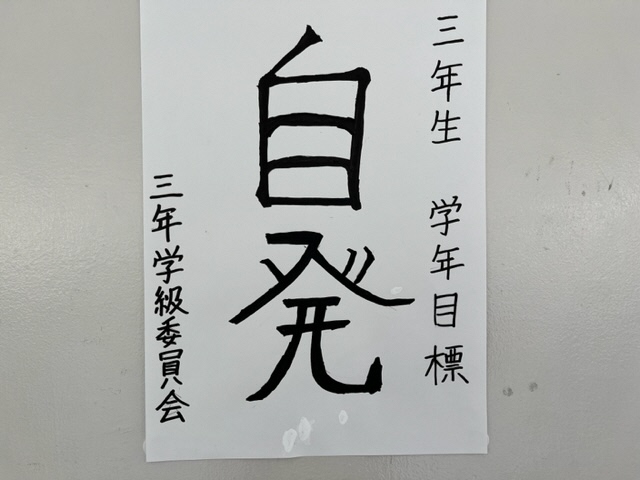 三年生 学年目標
自発
三年学級委員会